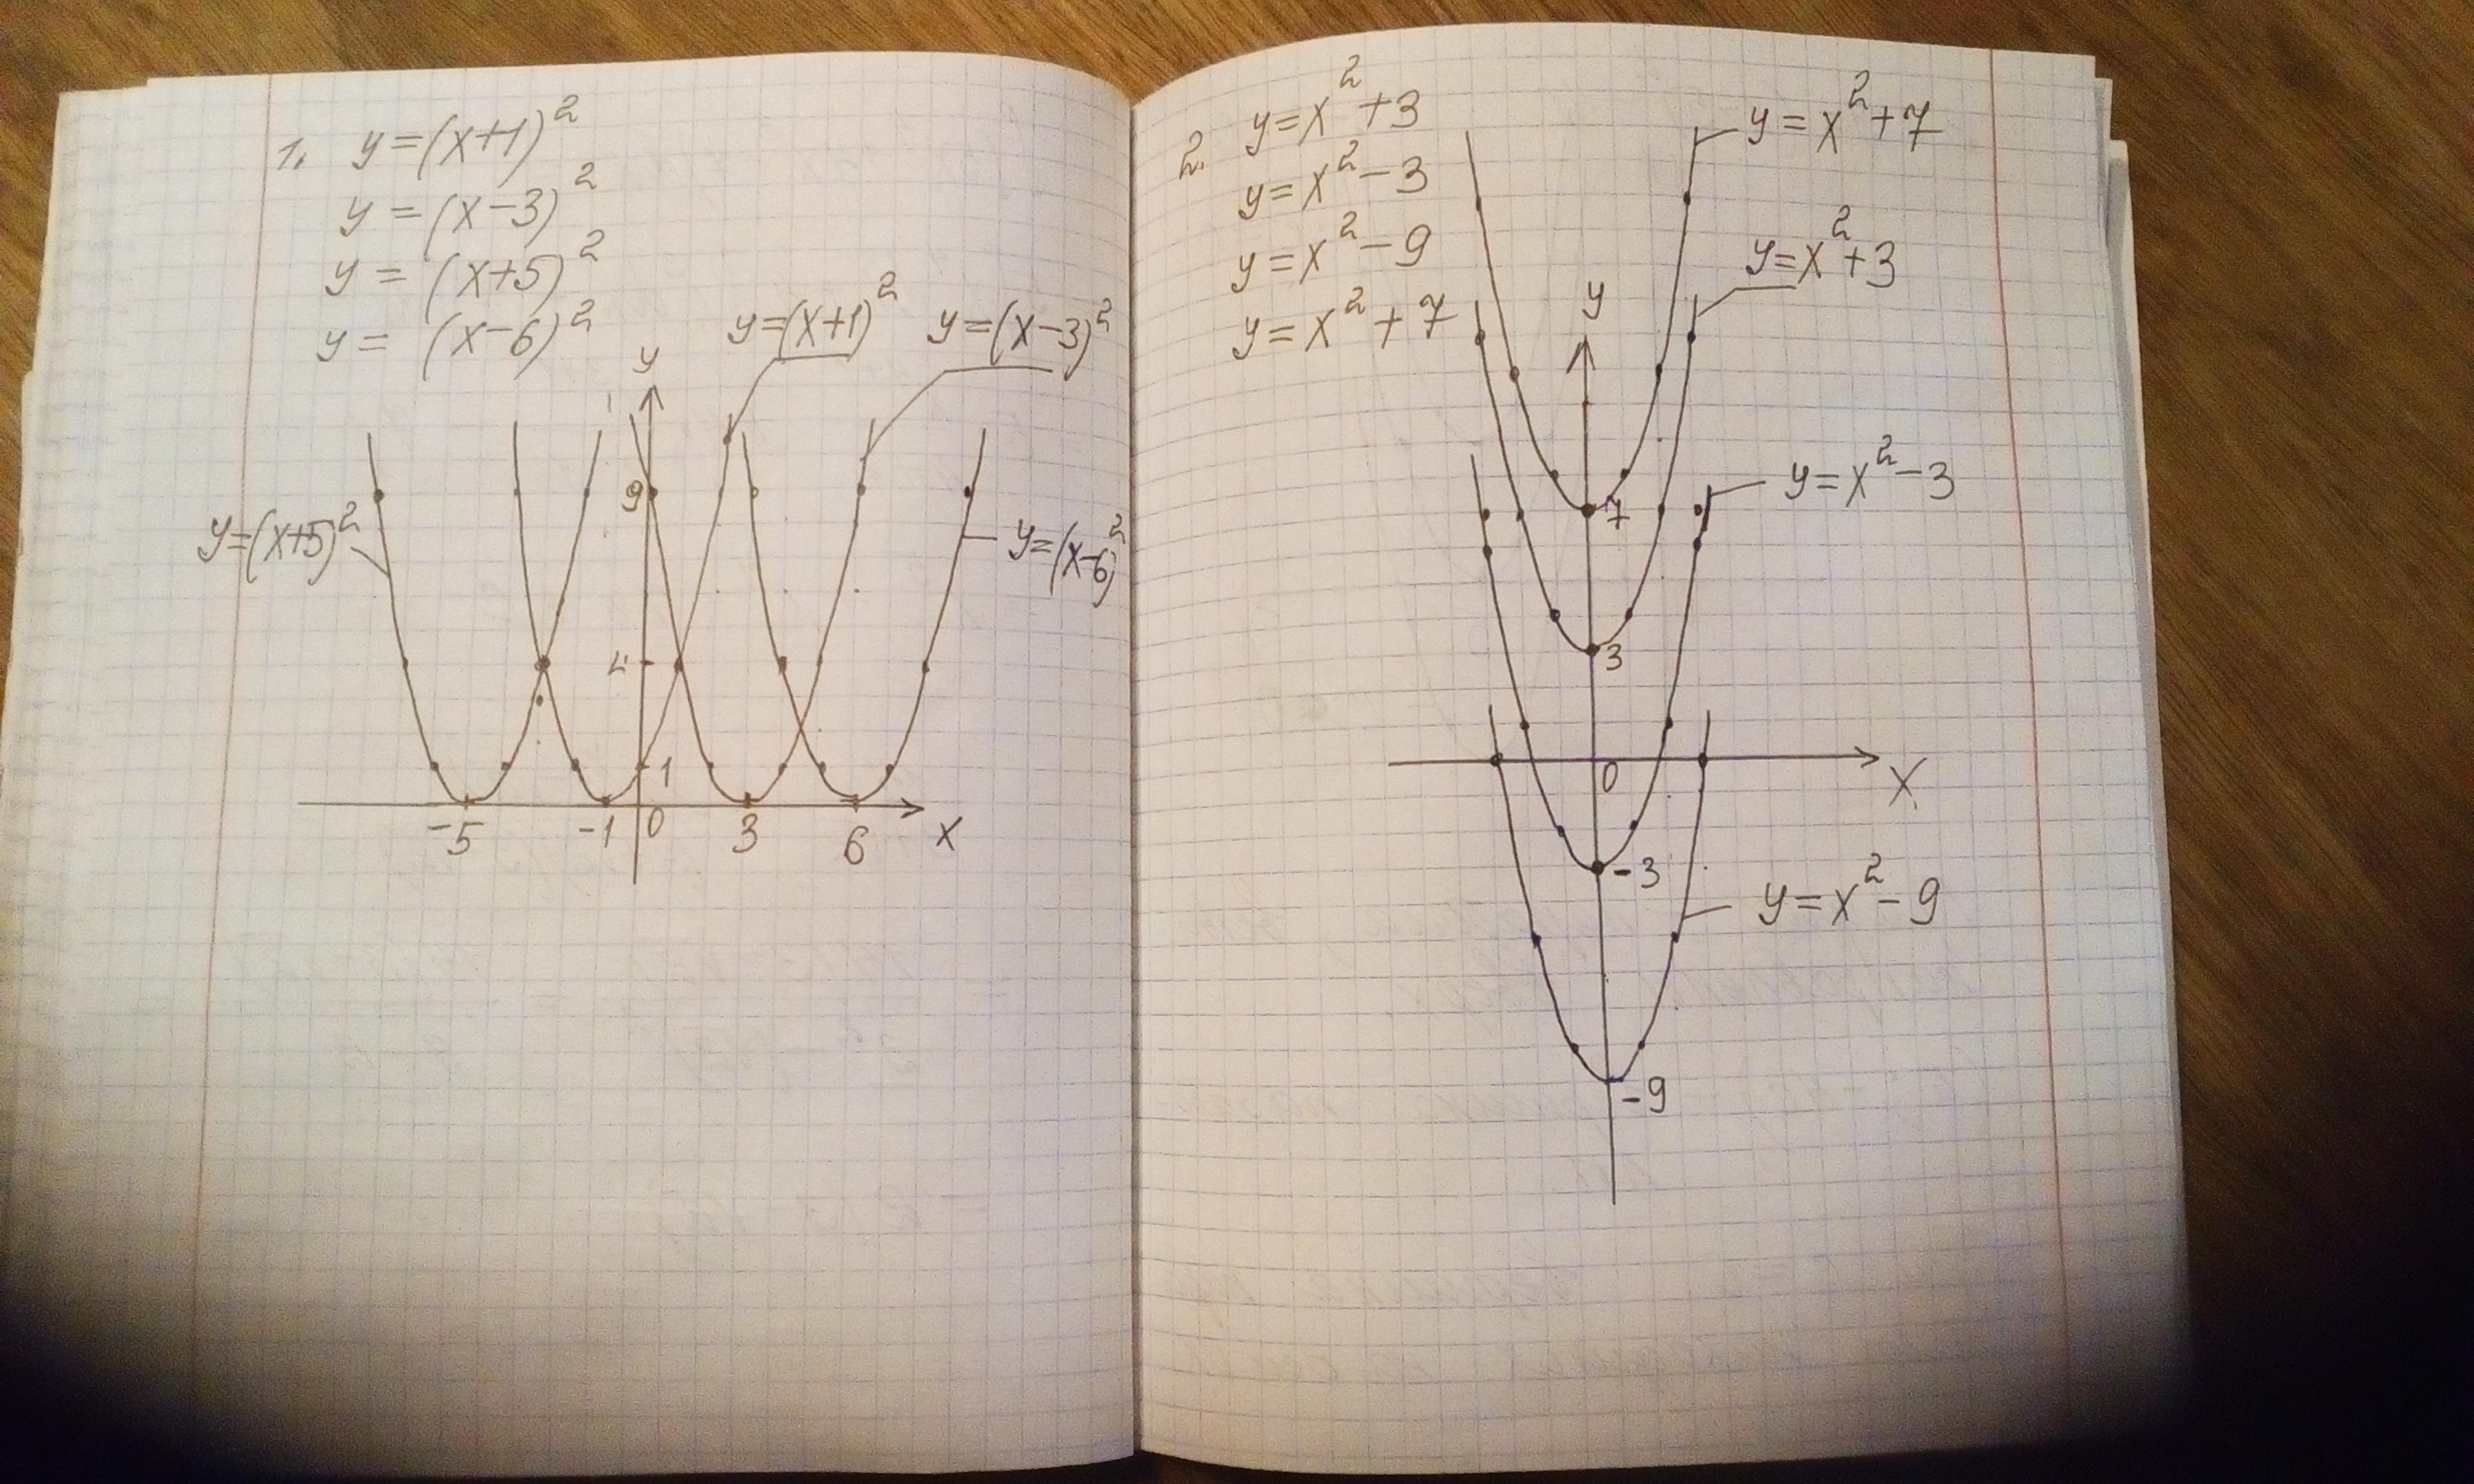 1. y=(x+1)²
y=(x-3)²
y=(x+5)²
y=(x-6)²
y
y=(x+1)²
y=(x-3)²
9
y=(x+5)²
y=(x-6)²
4
1
-5
-1
0
3
6
x
2. y=x²+3
y=x²-3
y=x²-9
y=x²+7
y=x²+7
y=x²+3
y
y=x²-3
7
3
0
x
-3
y=x²-9
-9